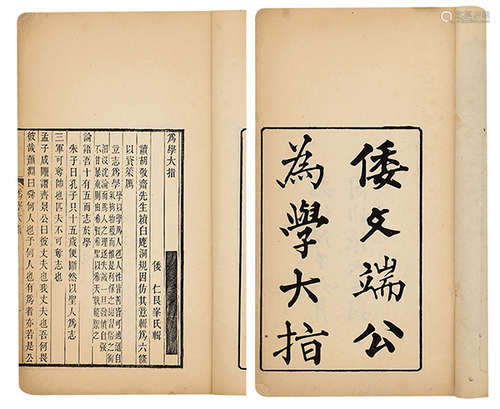 倭文端公
為學大指
爲學大指
倭 仁艮峯氏輯
讀胡敬齋先生續白鹿洞規因仿其意輯爲六條
以資策厲
立志爲學
論語吾十有五而志於學
朱子曰孔子只十五歲便斷然以聖人爲志
三軍可奪帥也匹夫不可奪志也
孟子成覸謂齊景公曰彼丈夫也我丈夫也吾何畏
彼哉顏淵曰舜何人也予何人也有爲者亦若是公